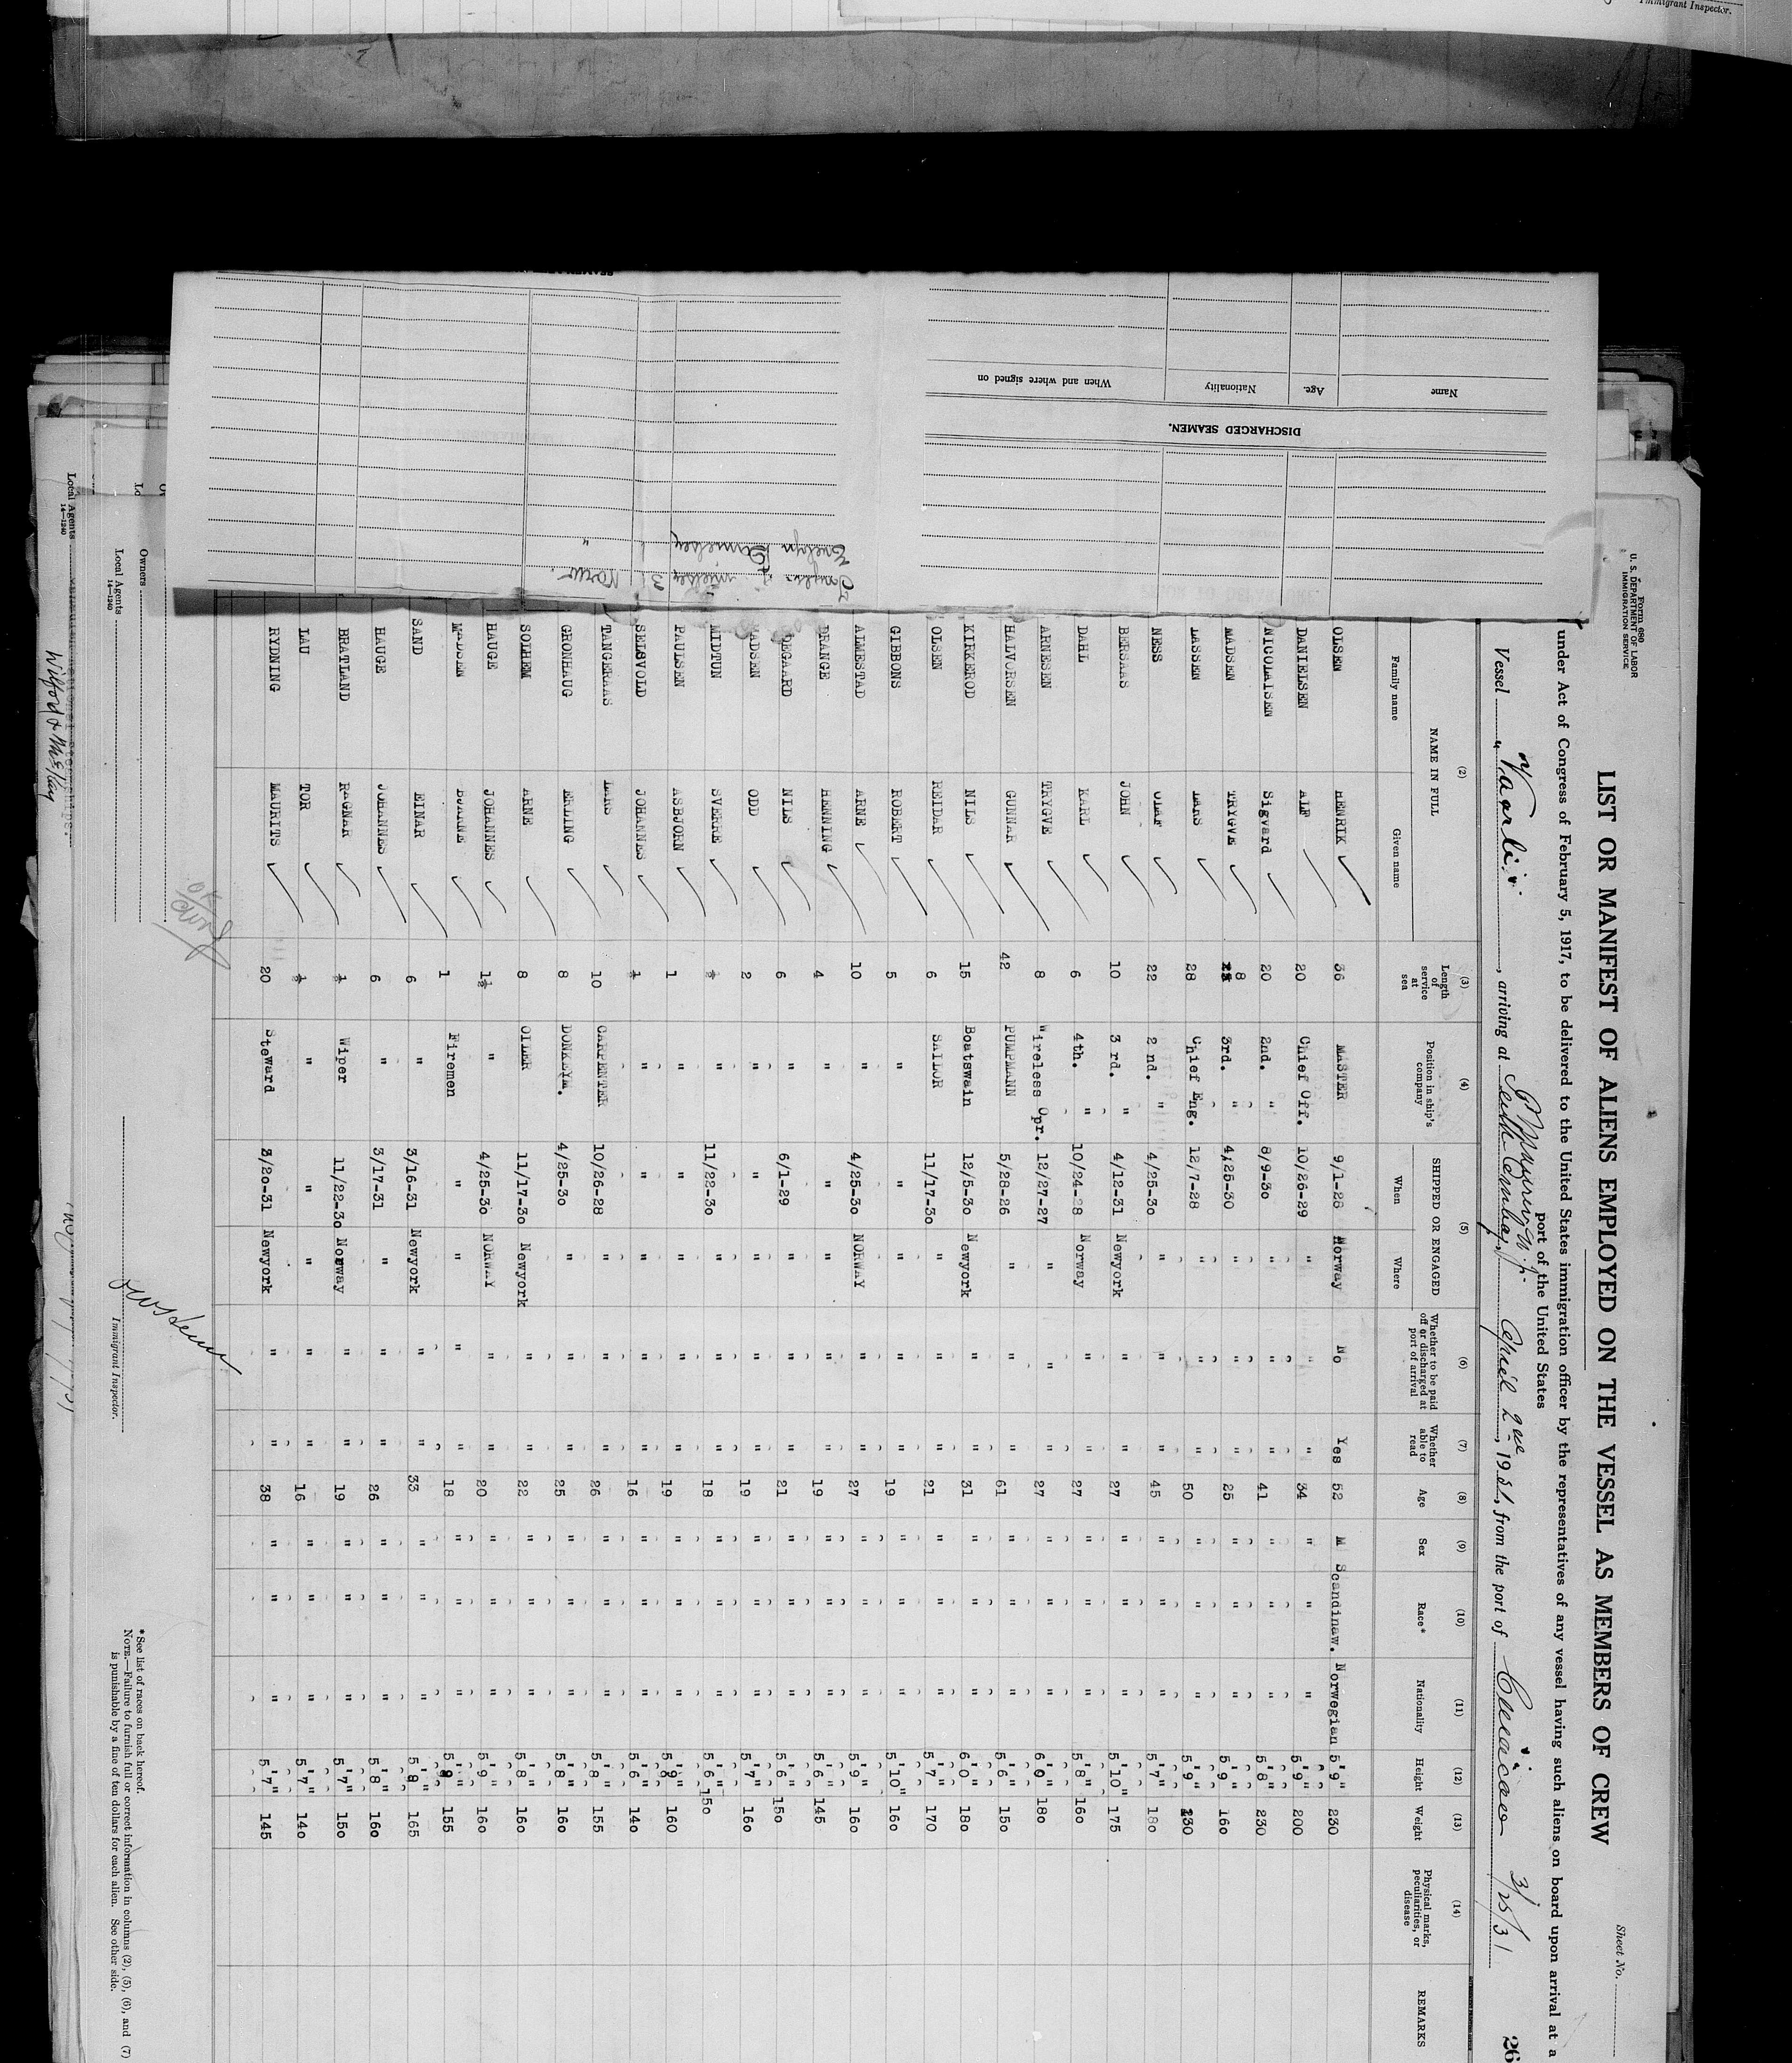 Immigrant Inspector.
Form 680
U. S. DEPARTMENT OF LABOR
IMMIGRATION SERVICE
Sheet No.
LIST OR MANIFEST OF ALIENS EMPLOYED ON THE VESSEL AS MEMBERS OF CREW
under Act of Congress of February 5, 1917, to be delivered to the United States immigration officer by the representatives of any vessel having such aliens on board upon arrival at a
port of the United States
Vessel , arriving at April 2nd, 1931, from the port of 3/25/31
26
(2) (3) (4) (5) (6) (7) (8) (9) (10) (11) (12) (13) (14)
NAME IN FULL Length of service at sea Position in ship's company SHIPPED OR ENGAGED Whether to be paid off or discharged at port of arrival Whether able to read Age Sex Race* Nationality Height Weight Physical marks, peculiarities, or disease REMARKS
Family name Given name When Where
OLSEN HENRIK 36 MASTER 9/1-28 Norway No Yes 52 M Scandinaw. Norwegian 5'9" 230
DANIELSEN ALF 20 Chief Off. 10/26-29 " " " 34 " " " 5'9" 200
NICOLAISEN Sigvard 20 2nd. " 8/9-30 " " " 41 " " " 5'8" 230
MADSEN TRYGVE 8 3rd. " 4/25-30 " " " 25 " " " 5'9" 160
LASSEN LARS 28 Chief Eng. 12/7-28 " " " 50 " " " 5'9" 230
NESS OLAF 22 2 nd. " 4/25-30 " " " 45 " " " 5'7" 180
BERSAAS JOHN 10 3 rd. " 4/12-31 Newyork " " 27 " " " 5'10" 175
DAHL KARL 6 4th. " 10/24-28 Norway " " 27 " " " 5'8" 160
ARNESEN TRYGVE 8 Wireless Opr. 12/27-27 " " " 27 " " " 6'0" 180
HALVORSEN GUNNAR 42 PUMPMANN 5/28-26 " " " 61 " " " 5'6" 150
KIRKEROD NILS 15 Boatswain 12/5-30 Newyork " " 31 " " " 6'0" 180
OLSEN REIDAR 6 SAILOR 11/17-30 " " " 21 " " " 5'7" 170
GIBBONS ROBERT 5 " " " " " 19 " " " 5'10" 160
ALMESTAD ARNE 10 " 4/25-30 NORWAY " " 27 " " " 5'9" 160
DRANGE HENNING 4 " " " " " 19 " " " 5'6" 145
ODEGAARD NILS 6 " 6/1-29 " " " 21 " " " 5'6" 150
MADSEN ODD 2 " " " " " 19 " " " 5'7" 160
MIDTUN SVERRE ½ " 11/22-30 " " " 18 " " " 5'6" 150
PAULSEN ASBJORN 1 " " " " " 19 " " " 5'9" 160
SELSVOLD JOHANNES ½ " " " " " 16 " " " 5'6" 140
TANGERAAS LARS 10 CARPENTER 10/26-28 " " " 26 " " " 5'8" 155
GRONHAUG ERLING 8 DONKEYM. 4/25-30 " " " 25 " " " 5'8" 160
SOLHEM ARNE 8 OILER 11/17-30 Newyork " " 22 " " " 5'8" 160
HAUGE JOHANNES 1½ " 4/25-30 NORWAY " " 20 " " " 5'9" 160
MADSEN BJARNE 1 Firemen " " " " 18 " " " 5'9" 155
SAND EINAR 6 " 3/16-31 Newyork " " 33 " " " 5'8" 165
HAUGE JOHANNES 6 " 3/17-31 " " " 26 " " " 5'8" 160
BRATLAND RAGNAR ½ Wiper 11/22-30 Norway " " 19 " " " 5'7" 150
LAU TOR ½ " " " " " 16 " " " 5'7" 140
RYDNING MAURITS 20 Steward 3/20-31 Newyork " " 38 " " " 5'7" 145
Immigrant Inspector.
Owners
Local Agents
14—1240
Local Agents
14—1240
*See list of races on back hereof.
NOTE.—Failure to furnish full or correct information in columns (2), (5), (6), and (7)
is punishable by a fine of ten dollars for each alien. See other side.
DISCHARGED SEAMEN.
Name Age. Nationality When and where signed on
31 Norw.